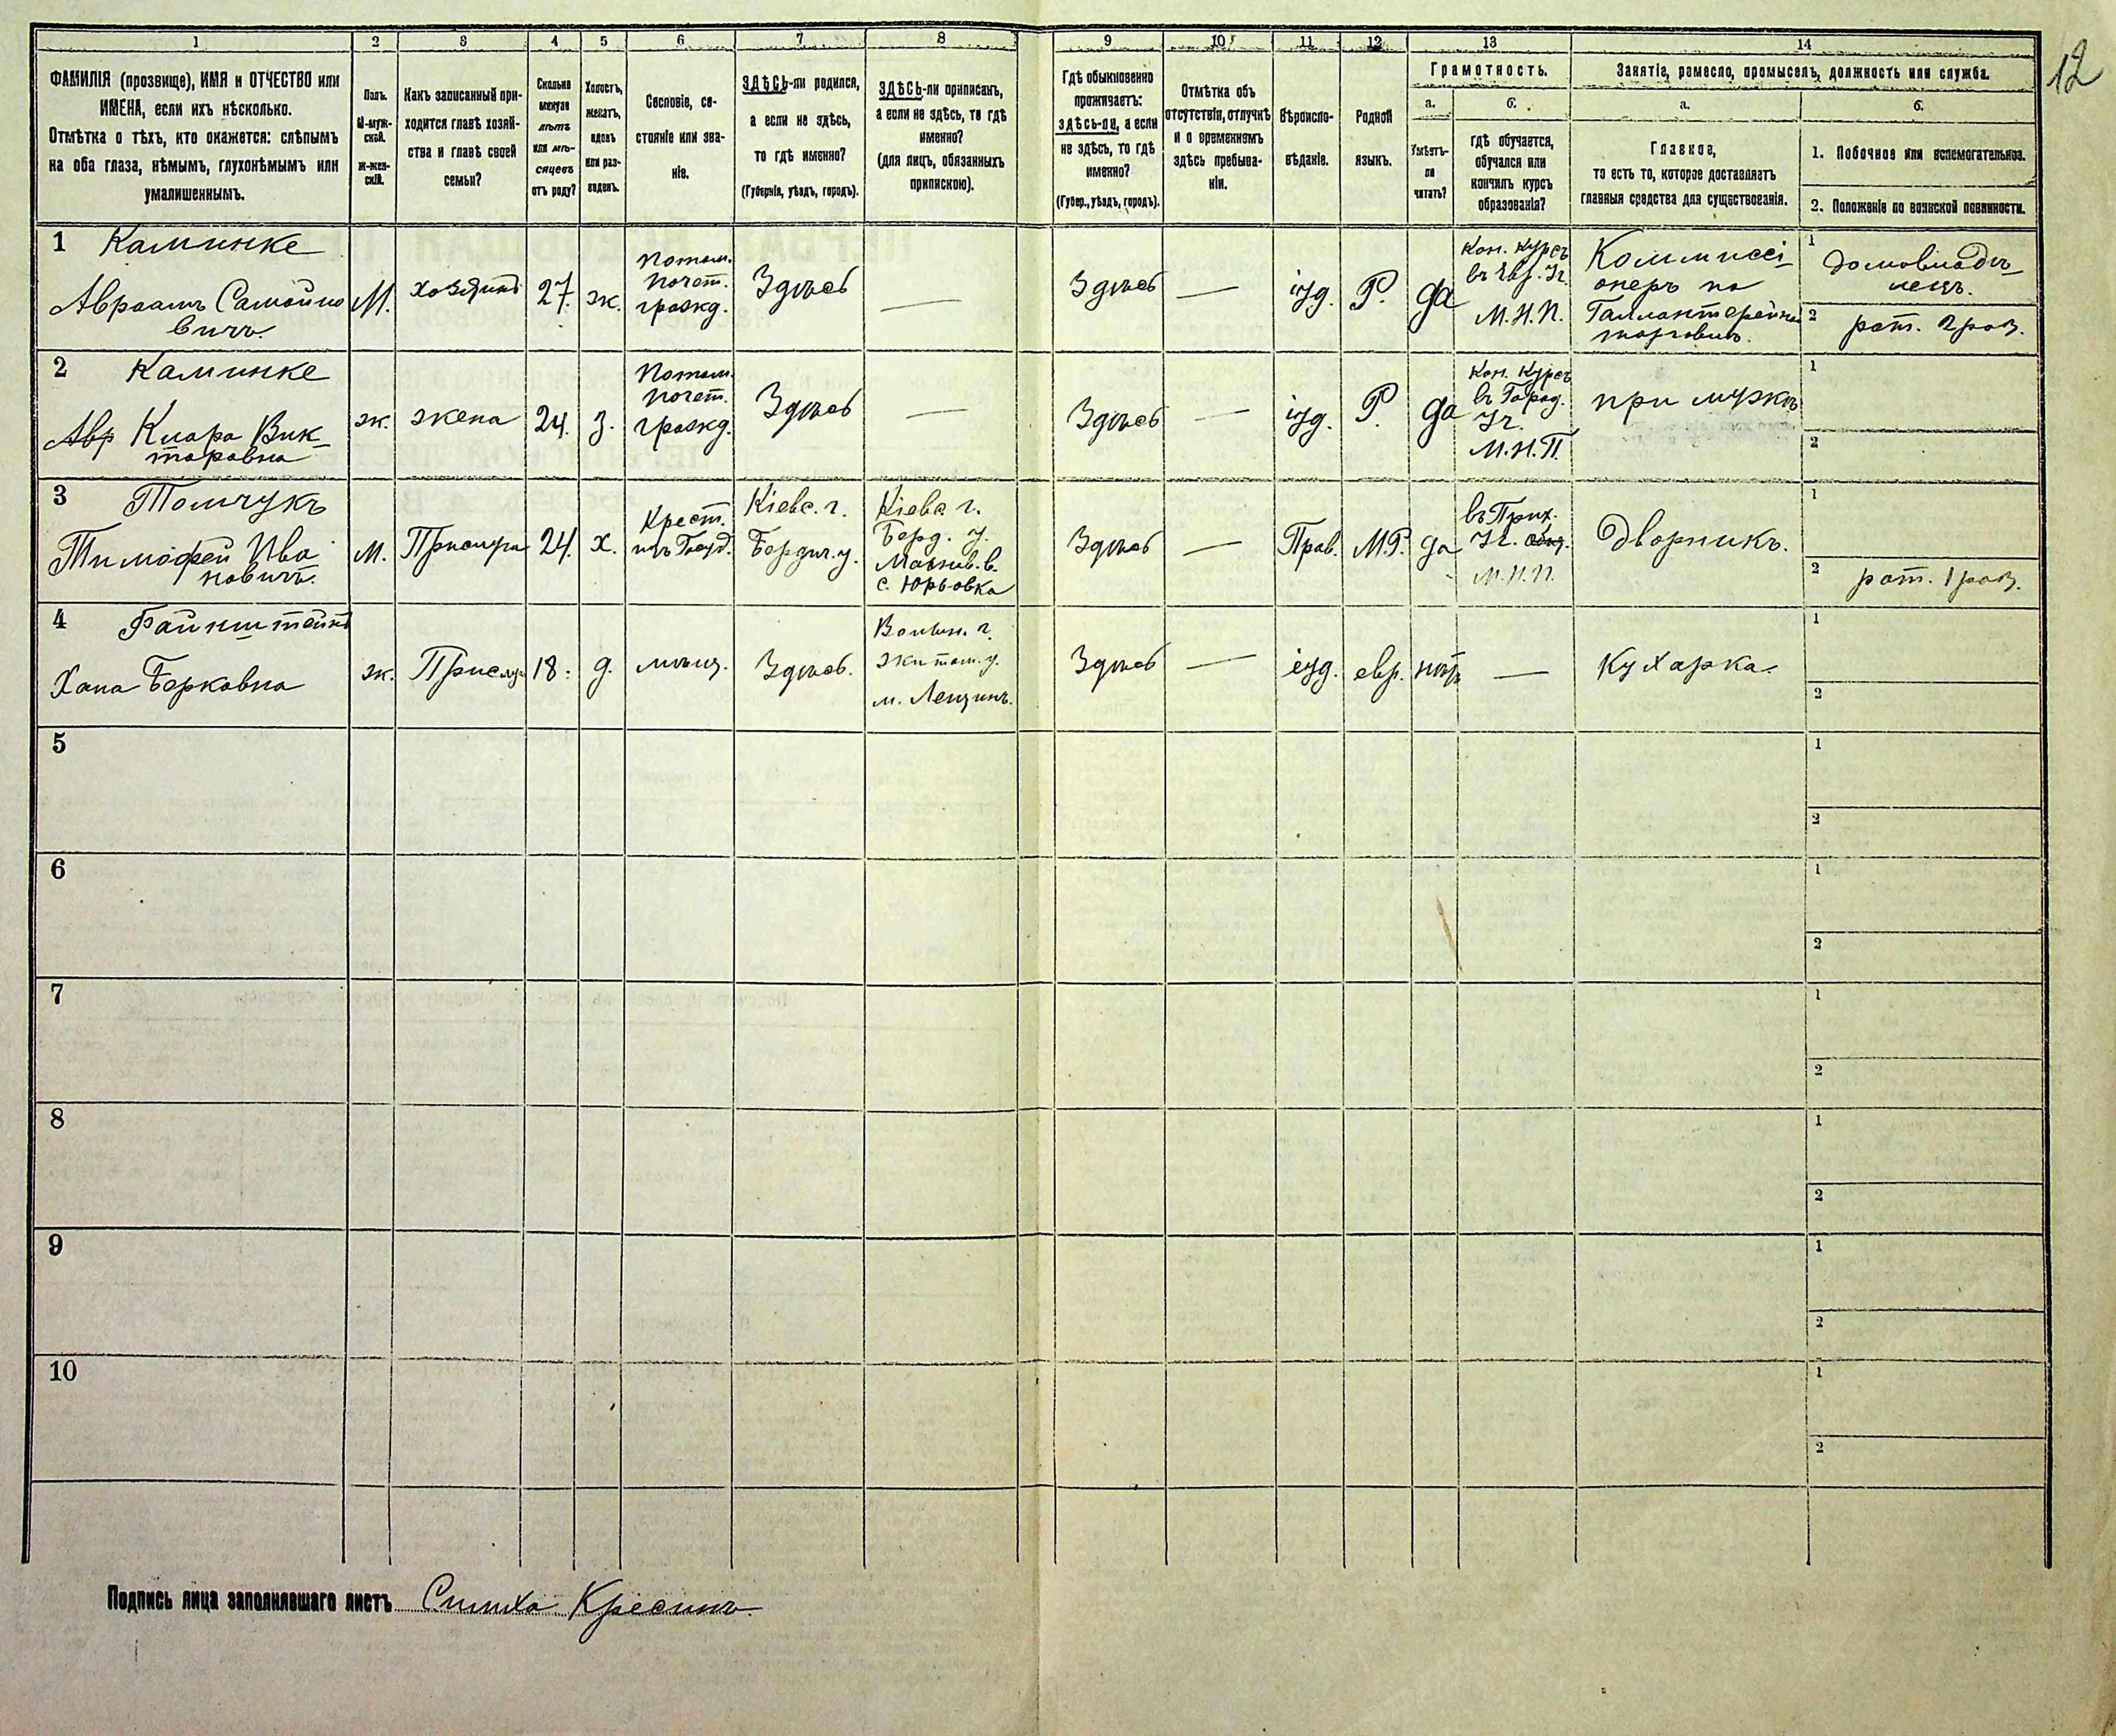 12
1 2 3 4 5 6 7 8 9 10 11 12 13 14
ФАМИЛІЯ (прозвище), ИМЯ и ОТЧЕСТВО или
ИМЕНА, если ихъ нѣсколько.
Отмѣтка о тѣхъ, кто окажется: слѣпымъ
на оба глаза, нѣмымъ, глухонѣмымъ или
умалишеннымъ.
Полъ.
М-муж-
ской.
Ж-жен-
скій.
Какъ записанный при-
ходится главѣ хозяй-
ства и главѣ своей
семьи?
Сколько
минуло
лѣтъ
или мѣ-
сяцевъ
отъ роду?
Холостъ,
женатъ,
вдовъ
или раз-
веденъ.
Сословіе, со-
стояніе или зва-
ніе.
ЗДѢСЬ-ли родился,
а если не здѣсь,
то гдѣ именно?
(Губернія, уѣздъ, городъ).
ЗДѢСЬ-ли приписанъ,
а если не здѣсь, то гдѣ
именно?
(для лицъ, обязанныхъ
припискою).
Гдѣ обыкновенно
проживаетъ:
здѣсь-ли, а если
не здѣсь, то гдѣ
именно?
(Губер., уѣздъ, городъ).
Отмѣтка объ
отсутствіи, отлучкѣ
и о временномъ
здѣсь пребыва-
ніи.
Вѣроиспо-
вѣданіе.
Родной
языкъ.
Грамотность.
а.
Умѣетъ-
ли
читать?
б.
гдѣ обучается,
обучался или
кончилъ курсъ
образованія?
Занятіе, ремесло, промыселъ, должность или служба.
а.
Главное,
то есть то, которое доставляетъ
главныя средства для существованія.
б.
1. Побочное или вспомогательное.
2. Положеніе по воинской повинности.
1 Каминке
Авраамъ Самойло
вичъ.
М.
хозяинъ
27.
ж.
потом.
почет.
гражд.
Здѣсь
—
Здѣсь
—
іуд.
Р.
да
Кон. курсъ
въ Евр. Уч.
М.Н.П.
Коммиссі-
онеръ по
Галлантерейной
торговлѣ.
1 домовладѣ-
лецъ.
2 рат. 2 раз.
2 Каминке
Авр Клара Вик-
торовна
ж.
жена
24.
з.
потом.
почет.
гражд.
Здѣсь
—
Здѣсь
—
іуд.
Р.
да
Кон. курсъ
въ Город.
Уч.
М.Н.П.
при мужѣ
1
2
3 Томчукъ
Тимофей Ива
новичъ.
М.
Прислуга
24.
х.
Крест.
Кіевс. г.
Бердич. у.
Кіевс. г.
Берд. у.
с. Юрьовка
Здѣсь
—
Прав.
М.Р.
да
въ Прих.
Уч.
М.Н.П.
Дворникъ.
1
2 рат. 1 раз.
4 Файнштейнъ
Хана Берковна
ж.
Прислуга
18.
д.
мѣщ.
Здѣсь.
Волын. г.
Житом. у.
Здѣсь
—
іуд.
евр.
нѣтъ
—
Кухарка.
1
2
5
1
2
6
1
2
7
1
2
8
1
2
9
1
2
10
1
2
Подпись лица заполнявшаго листъ Симха Кресинъ.